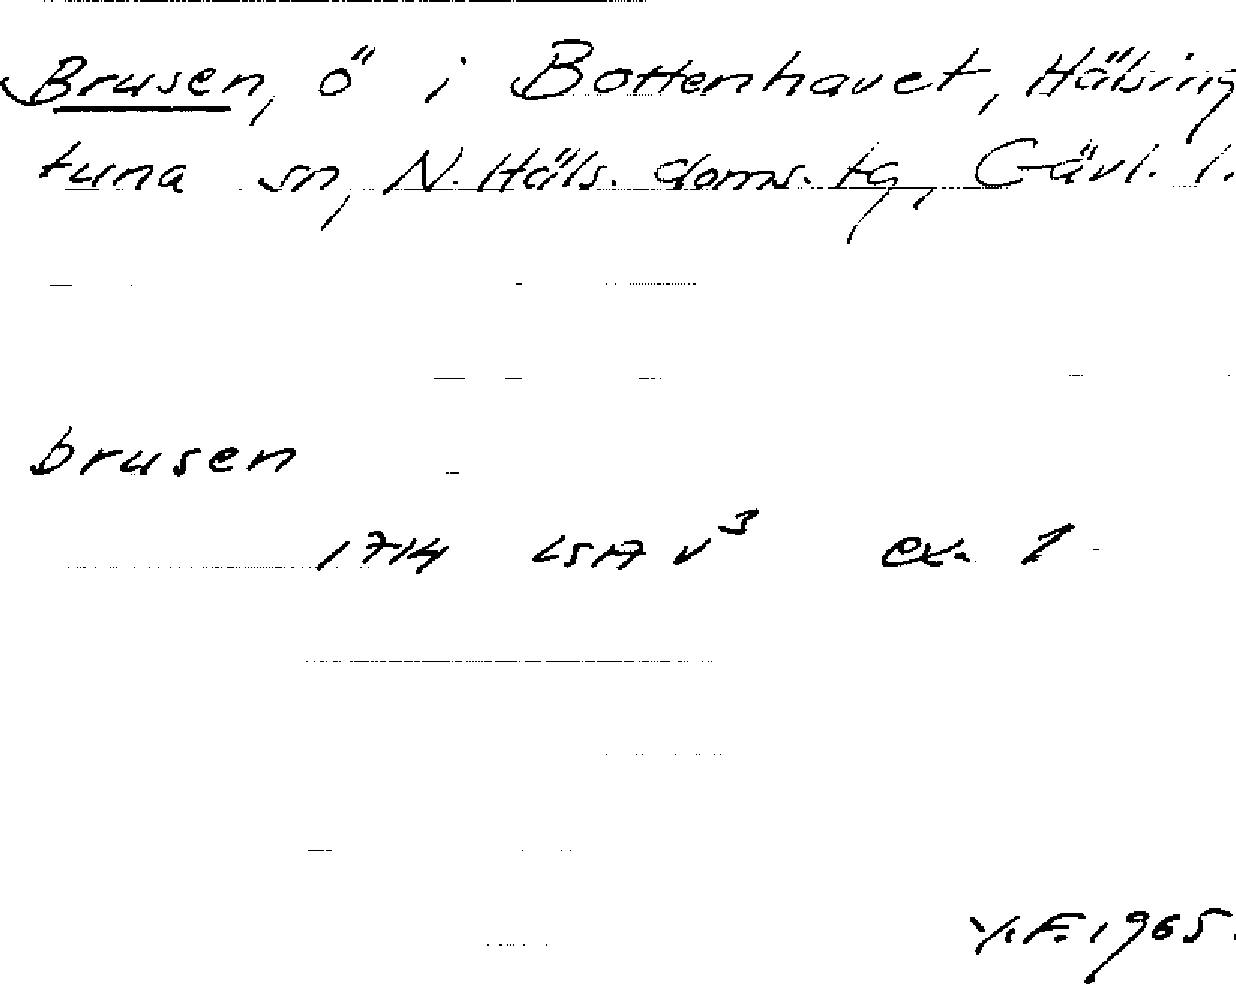 Brusen, ö i Bottenhavet, Hälsing
tuna sn, N. Häls. doms. tg, Gävl. l.
brusen
1714 LSA v³ ex. 1
Y.F. 1965.